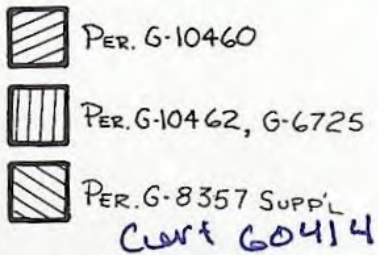 PER. G-10460
PER. G-10462, G-6725
PER. G-8357 SUPP'L
Cert 60414